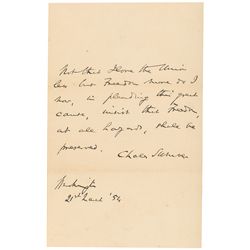 Not that I love the Union
less but Freedom more do I
now, in pleading this great
cause, insist that Freedom,
at all hazards, shall be
preserved.
Charles Sumner
Washington
21st '54